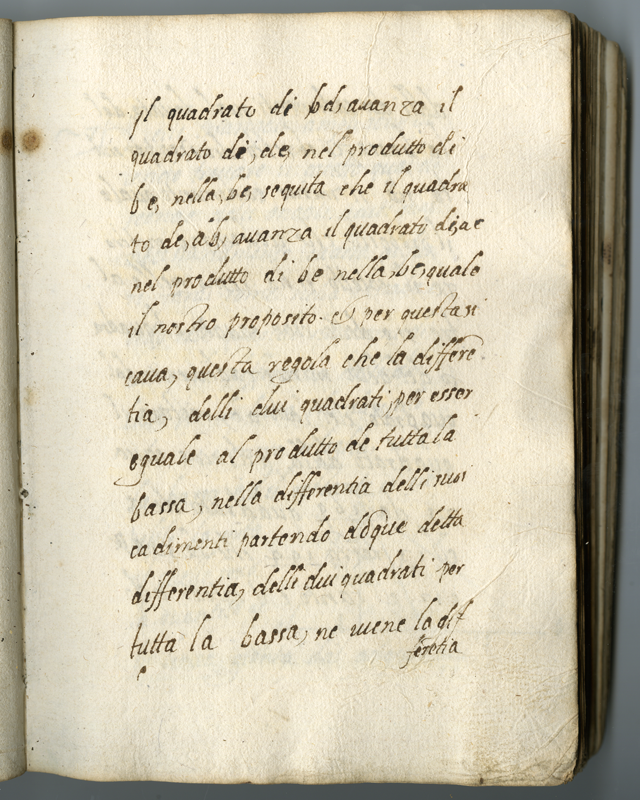 Il quadrato de bd, auanza il
quadrato de, de, nel produtto di
be, nella, be, sequita che il quadra
to de, ab, auanza il quadrato de, ae
nel produtto di be nella, be, quale
il nostro proposito. & per questa si
caua, questa regola che la differē
tia, delli dui quadrati, per esser
eguale al produtto de tutta la
bassa, nella differentia delli suoi
cadimenti partendo dōque detta
differentia, delli dui quadrati per
tutta la bassa, ne uiene la dif
ferētia